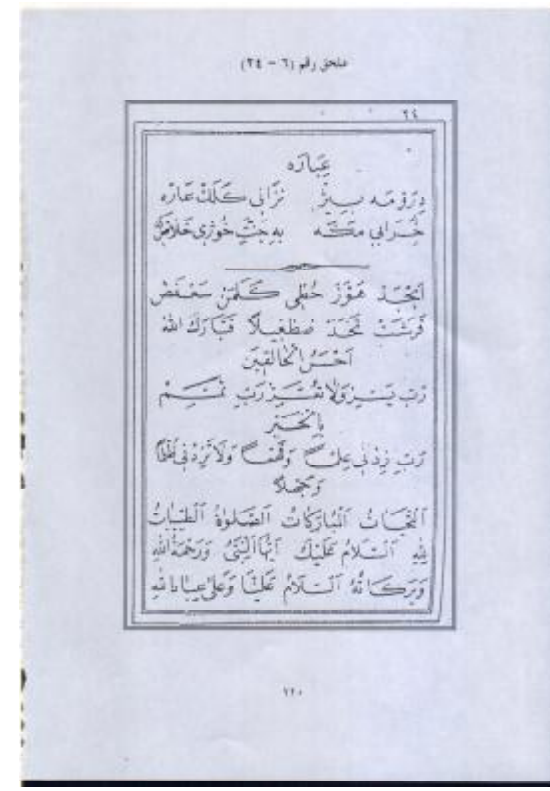 ملحق رقم (٦ - ٢٤)
٢٤
عِبارَه
دِرَوْ مَه بِيژ نزانى كَلَكْ عَارَه
خُرَابى مَكَه بهِ جِتْ خُوَرى
اَبْجَدْ هَوَّزْ حُطِّى كَلَمَنْ سَعْفَصْ
قَرَشَتْ ثَخَذْ ضَظَغِيلاً فَتَبَارَكَ اللهُ
اَحْسَنُ الْخَالِقِينَ
رَبِّ يَسِّرْ وَلاَ تُعَسِّرْ رَبِّ تَمِّمْ
بِالْخَيْرِ
رَبِّ زِدْنِى عِلْمًا وَفَهْمًا وَلاَ تَزِدْنِى ظُلْمًا
وَجَهْلاً
اَلتَّحِيَّاتُ اَلْمُبَارَكَاتُ اَلصَّلَوَاةُ اَلطَّيِّبَاتُ
لِلهِ اَلسَّلاَمُ عَلَيْكَ اَيُّهَا النَّبِىُّ وَرَحْمَةُ اللهِ
وَبَرَكَاتُهُ اَلسَّلاَمُ عَلَيْنَا وَعَلَى عِبَادِ اللهِ
١٢٠